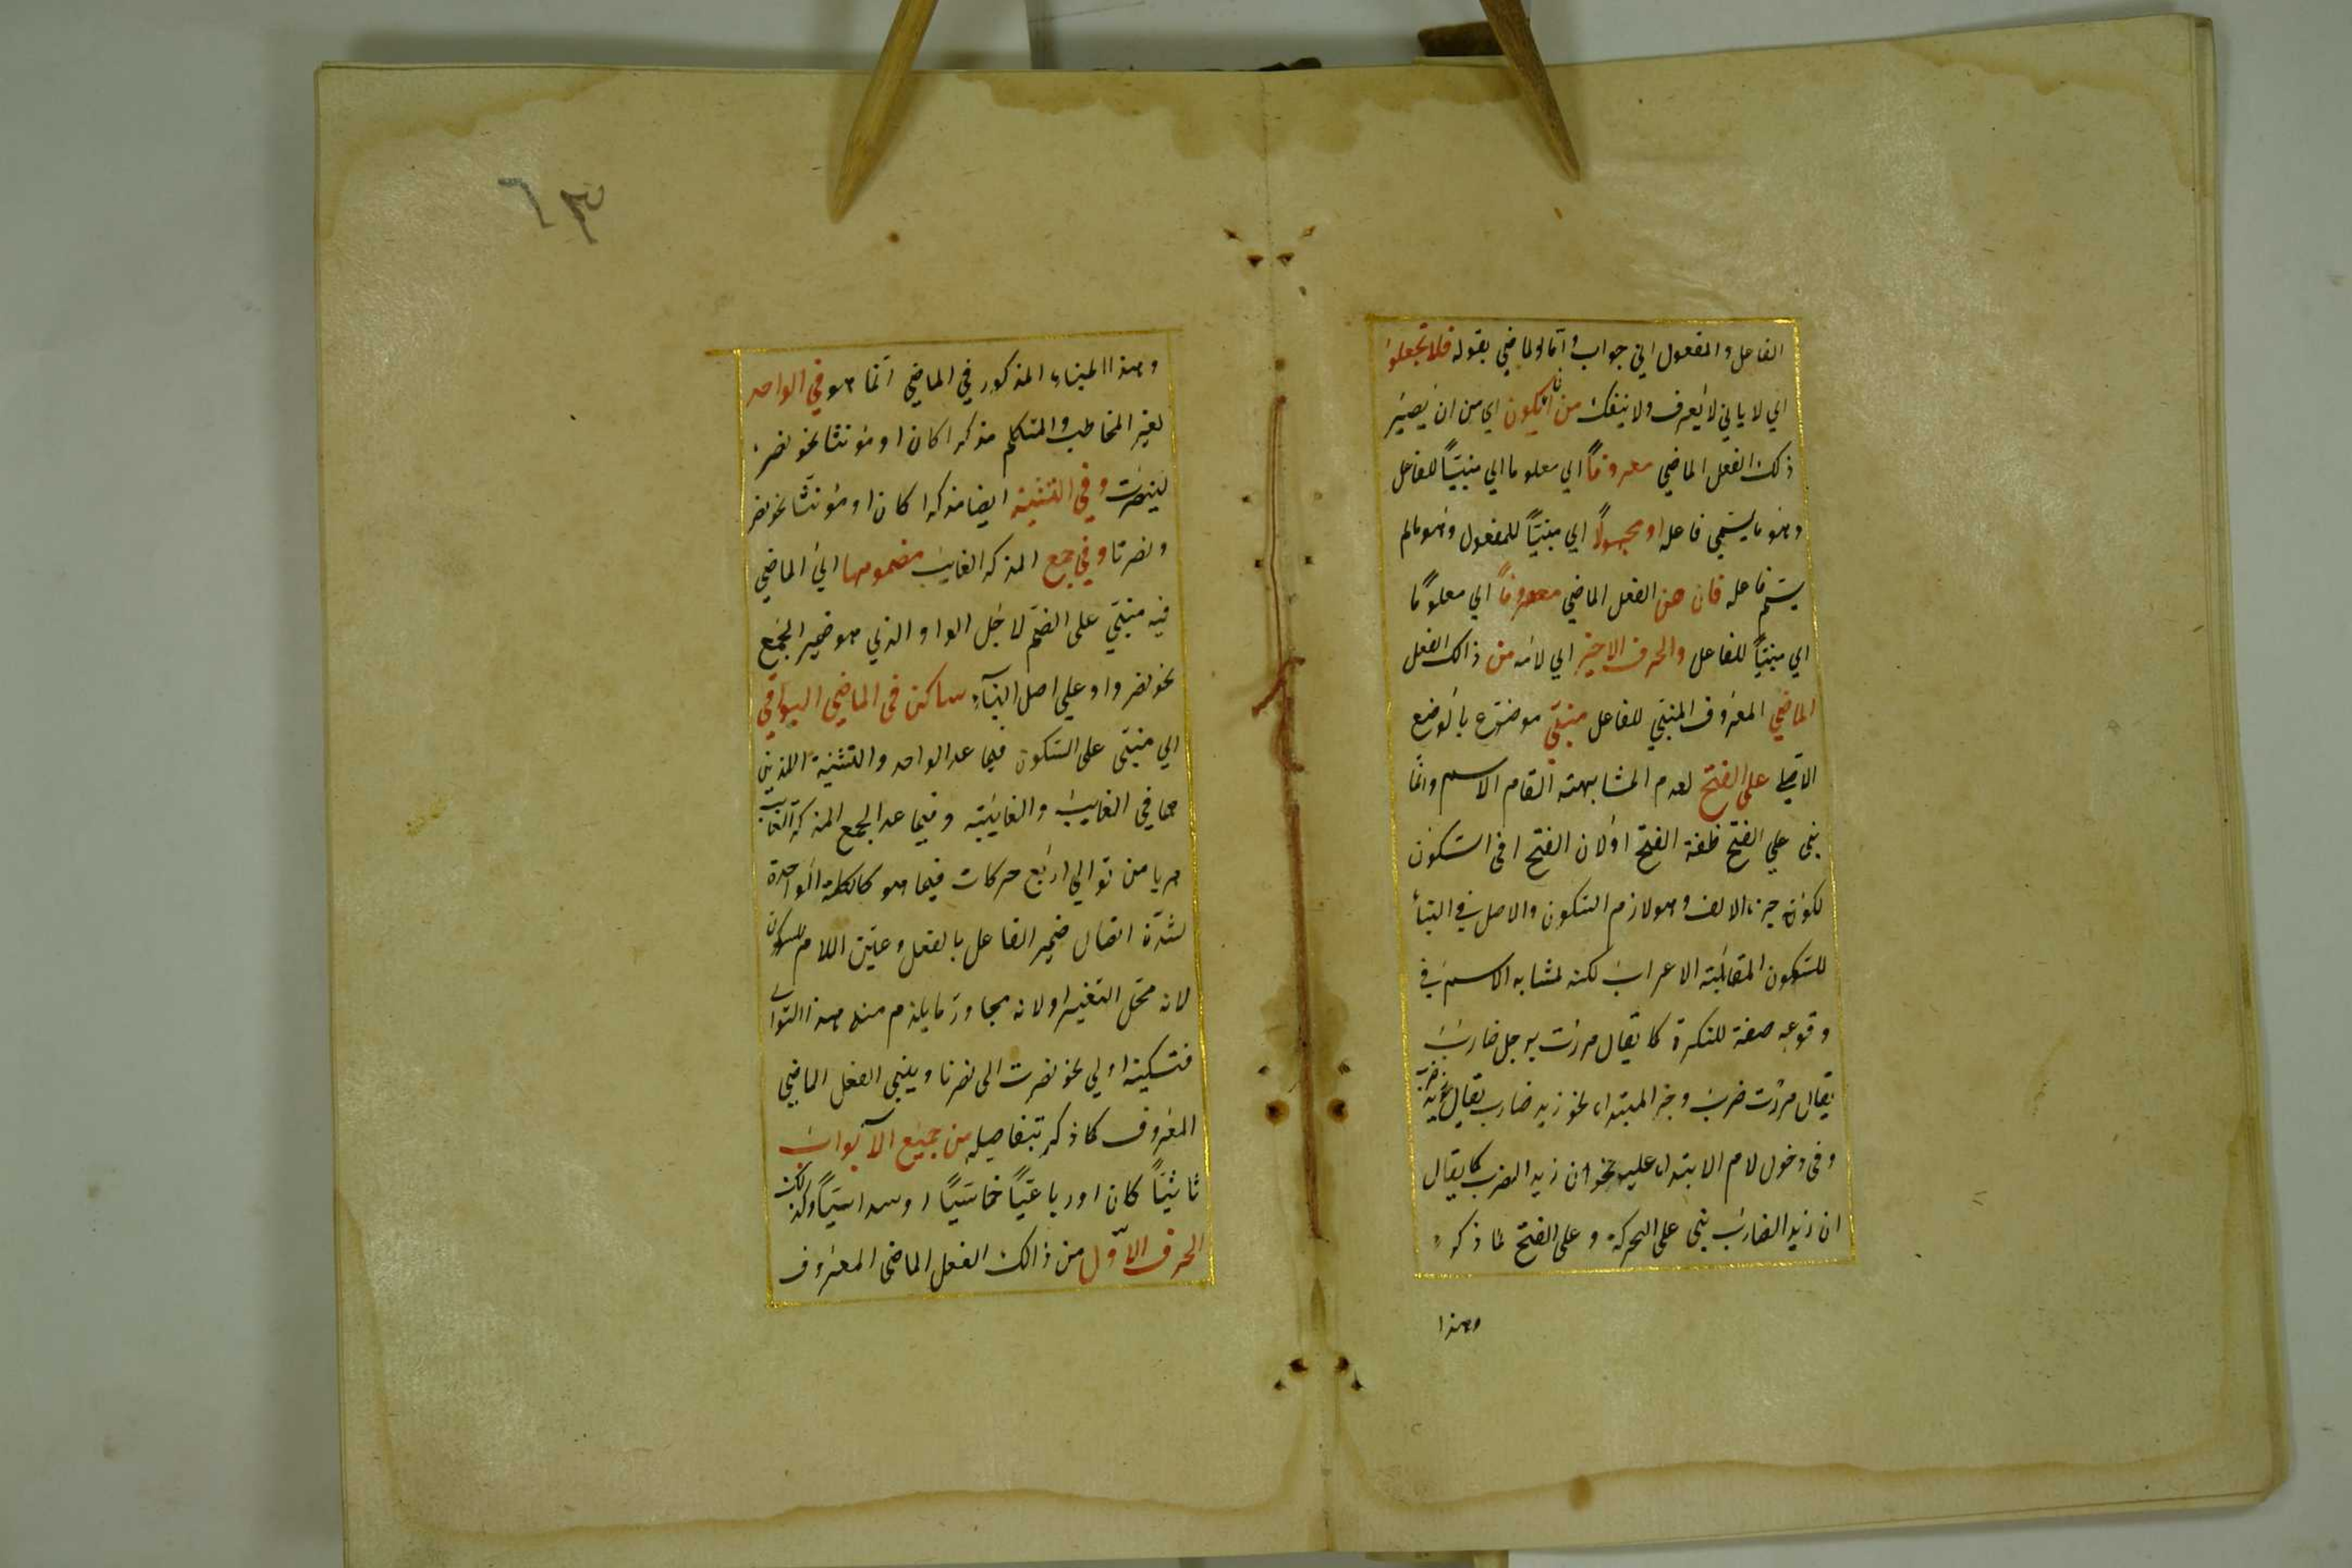 الفاعل والمفعول اي جواب واما الماضي بقوله فلا تجعلوا
اي لا ياتي لا يعرف ولا ينفك من ان يكون اي من ان يصير
ذلك الفعل الماضي معروفاً اي معلوما اي مبنيّاً للفاعل
وهو ما يسمي فاعله او مجهولاً اي مبنيّاً للمفعول وهو مالم
يسم فاعله فان هن الفعل الماضي معروفاً اي معلومًا
اي مبنيّاً للفاعل والحرف الاخير اي لامه من ذالك الفعل
الماضي المعروف المبني للفاعل مبنيّ موضوع بالوضع
الاصلي على الفتح لعدم المشابهته التام الاسم وانما
بني علي الفتح خفة الفتح اولان الفتح اخ السكون
لكونه جزء الالف وهو لازم السكون والاصل في البناء
للسكون المقابلته الاعراب لكنه لمشابه الاسم في
وقوعه صفة للنكرة كما يقال مررت برجل ضارب
يقال مررت ضرب وخبر المبتداء نحو زيد ضارب يقال زيد ضرب
وفي دخول لام الابتداء عليه نحو ان زيد الضرب كما يقال
ان زيد الضارب بني على الحركة وعلى الفتح لما ذكر
وهذا
٦٣
وهذا البناء المذكور في الماضي انما هو في الواحد
لغير المخاطب والمتكلم مذكرا كان او مؤنثا نحو نصر
لينصرت وفي التثنية ايضا مذكرا كان او مؤنثا نحو نصر
ونصرتا وفي جمع المذكر الغايب مضمومها اي الماضي
فيه مبنيّ على الضم لاجل الواو الذي هو ضمير الجمع
نحو نصروا وعلي اصل البناء ساكن في الماضي البواقي
اي مبنيّ على السكون فيما عد الواحد والتثنية اللذين
هما في الغايب والغايبته وفيما عد الجمع المذكر الغايب
هربا من توالي اربع حركات فيما هو كالكلمة الواحدة
لشدّة اتصال ضمير الفاعل بالفعل وعيّن اللام للسكون
لانه محل التغير اولانه مجاور لما يلزم منه هذا التوالي
فتسكينه اولي نحو نصرت الى نصرنا ويبني الفعل الماضي
المعروف كما ذكر بتفاصيله من جميع الابواب
ثلاثيّاً كان او رباعيّاً خماسيّاً او سداسيّاً وكذلك
الحرف الاوّل من ذالك الفعل الماضي المعروف